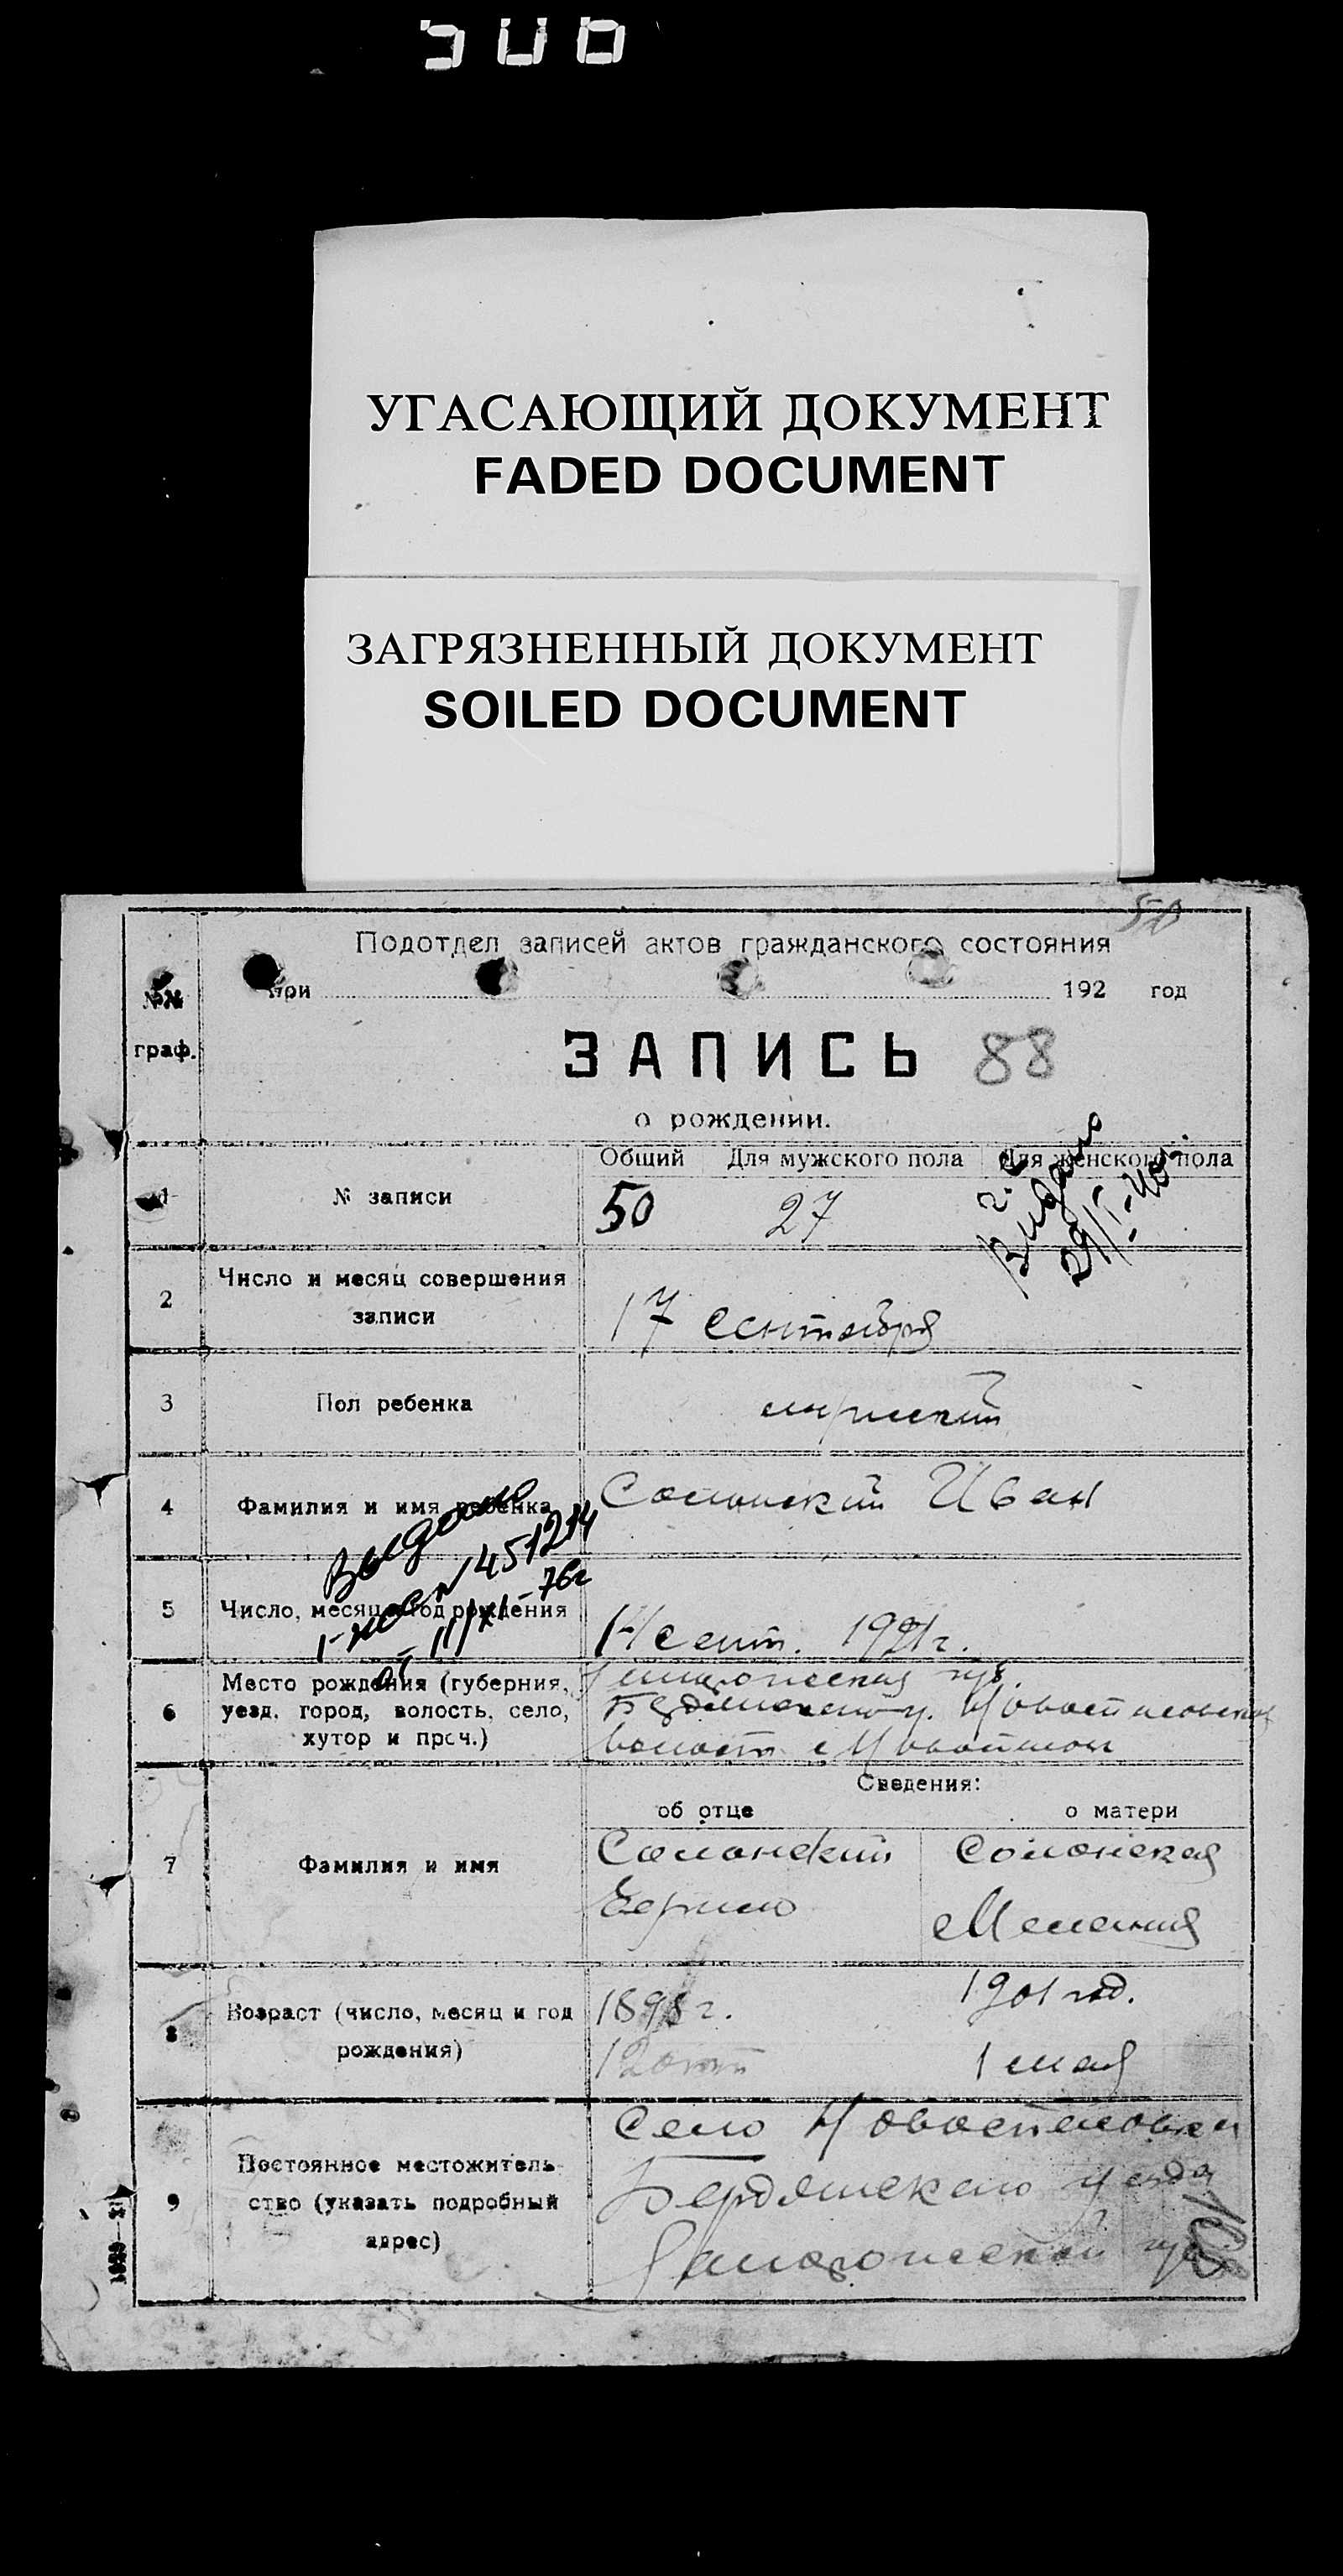 УГАСАЮЩИЙ ДОКУМЕНТ
FADED DOCUMENT
ЗАГРЯЗНЕННЫЙ ДОКУМЕНТ
SOILED DOCUMENT
50
Подотдел записей актов гражданского состояния
при 192 год
№№ граф.
ЗАПИСЬ 88
о рождении.
Общий Для мужского пола Для женского пола
1 № записи 50 27
Видано
29/I-40г.
2 Число и месяц совершения записи 17 Сентября
3 Пол ребенка мужский
4 Фамилия и имя ребенка Солонский Иван
Выдано
№ 451214
11/XI-76г
5 Число, месяц и год рождения 14 сент. 1921г.
6 Место рождения (губерния,
уезд, город, волость, село,
хутор и проч.)
губ.
Бердянского у.
волость с.
Сведения:
об отце о матери
7 Фамилия и имя Солонский Солонская
Мелания
8 Возраст (число, месяц и год рождения) 1898г. 1901 год.
1 мая
9 Постоянное местожитель-
ство (указать подробный
адрес)
Село
Бердянского уезда
губ.